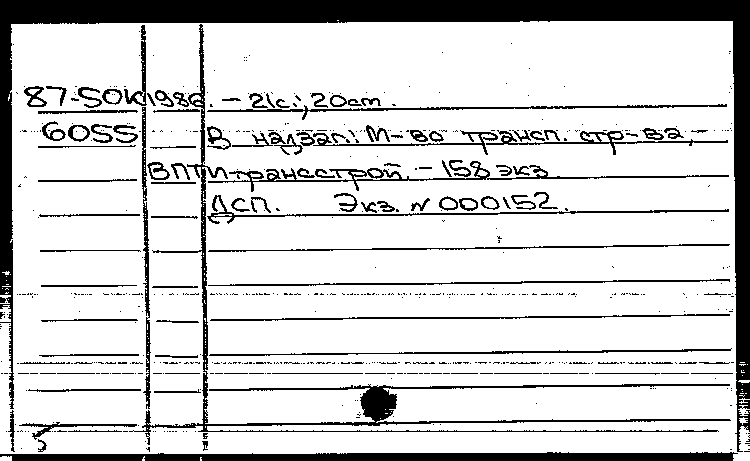 87-5ок 1986. - 21с.; 20см.
6055 В надзаг: М-во трансп. стр-ва, -
ВПТИтрансстрой. - 158 экз
ДСП. Экз. N 000152.
5